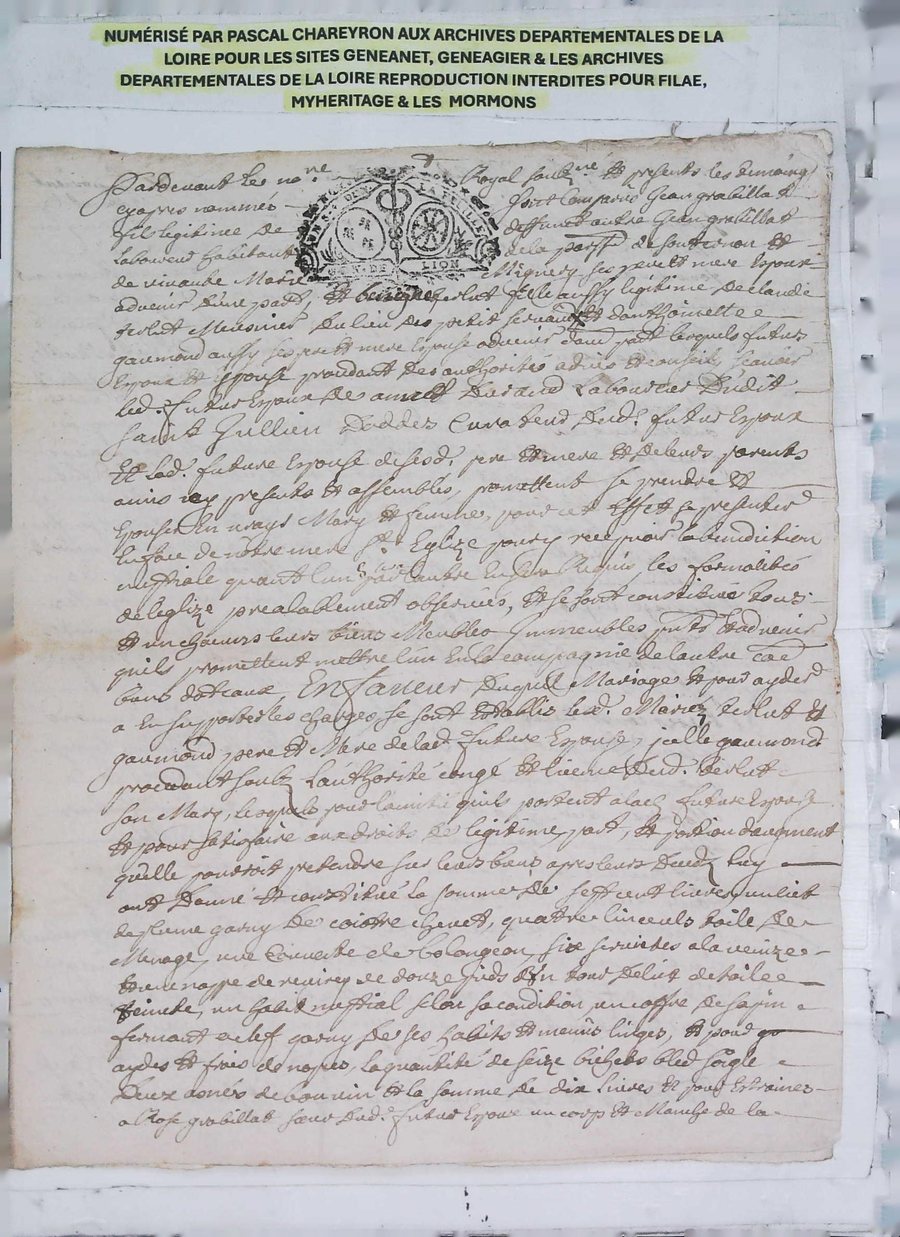 NUMÉRISÉ PAR PASCAL CHAREYRON AUX ARCHIVES DEPARTEMENTALES DE LA
LOIRE POUR LES SITES GENEANET, GENEAGIER & LES ARCHIVES
DEPARTEMENTALES DE LA LOIRE REPRODUCTION INTERDITES POUR FILAE,
MYHERITAGE & LES MORMONS
Pardevant les no.re Royal soubz.né et presents les temoins
cyapres nommes Jean grabillat
fils legitime de deffunct autre Jean grabillat
laboureur habitant de la parsse de
de vivante Marie Mignery ses pere et mere Epoux
advenir d'une part, et benigne terlut fille aussy legitime de claude
terlut Meusnier du lieu des petit et d'anthoinette
gaumond aussy ses pere et mere Epouse advenir d'autre part lesquels futurs
Epoux et Epouse procedant des authorités advis et conseils scavoir
led. futur Epoux de Durand Laboureur dudit
saint Jullien Doddes Curateur dud. futur Epoux
et lad. future Epouse de sesd. pere et mere et de leurs parents
amis icy presents et assembles, promettent se prendre et
Epouser en vrays Mary et femme, pour cet Effet se presenter
en face de notre mere ste Eglize pour y recepvoir la benediction
nuptiale quant l'un par l'autre en sera Requis, les formalités
de leglize prealablement observées, et se sont constitués tous
et un chacuns leurs biens Meubles Immeubles pnts et advenir
quils promettent mettre l'un en la compagnie de l'autre
biens dotaux, En faveur duquel Mariage et pour ayder
a en supporter les charges, se sont Establis lesd. Mariez terlut et
gaumond, pere et Mere de lad. future Epouse, icelle gaumond
procedant soubz l'authorité congé et licence dud. terlut
son Mary, lesquels pour l'amitié quils portent a lad. future Epouse
et pour satisfaire aux droits de legitime, part, et portion daugment
quelle pourroit pretendre sur leurs biens apres leurs deceds luy
ont donné et constitué la somme de sept cent livres, un lict
de plume garny de coittre chevet, quatre linceuls toile de
Menage, une couverte de Catalongeon, six serviettes a la venize
et une nappe de de douze pieds Un tour de lict de toile
teinte, un habit nuptial selon sa condition un coffre de sapin
fermant a clef garny de ses habits et menûs linges, et pour
aydes et frais de nopces, la quantité de seize bichets bled soigle
deux asnés de bon vin et la somme de dix livres et pour Estraines
a Rose grabillat sœur dud. futur Epoux un corp et Manche de la